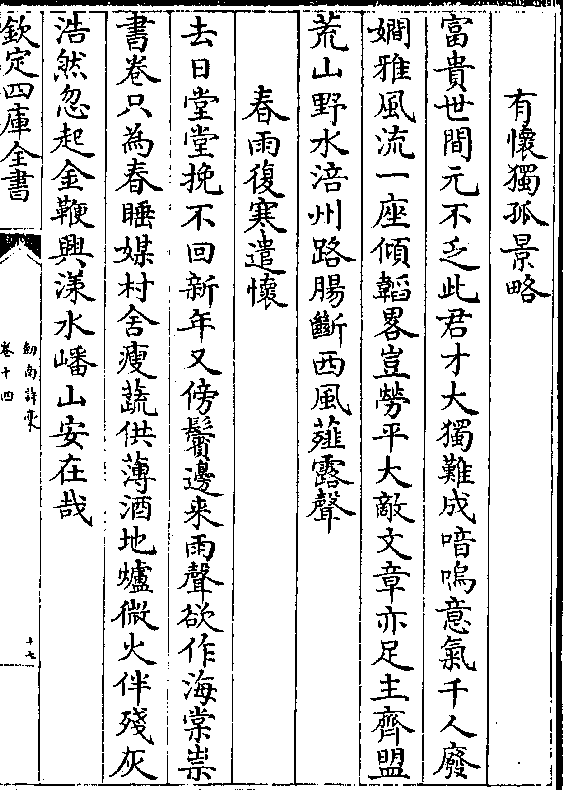 有懷獨孤景略
富貴世間元不乏此君才大獨難成喑嗚意氣千人廢
嫺雅風流一座傾韜畧豈勞平大敵文章亦足主齊盟
荒山野水涪州路腸斷西風薤露聲
春雨復寒遣懷
去日堂堂挽不回新年又傍鬢邊来雨聲欲作海棠祟
書卷只為春睡媒村舍瘦蔬供薄酒地爐微火伴殘灰
浩然忽起金鞭興漾水嶓山安在哉
欽定四庫全書
劍南詩稾
卷十四
十七